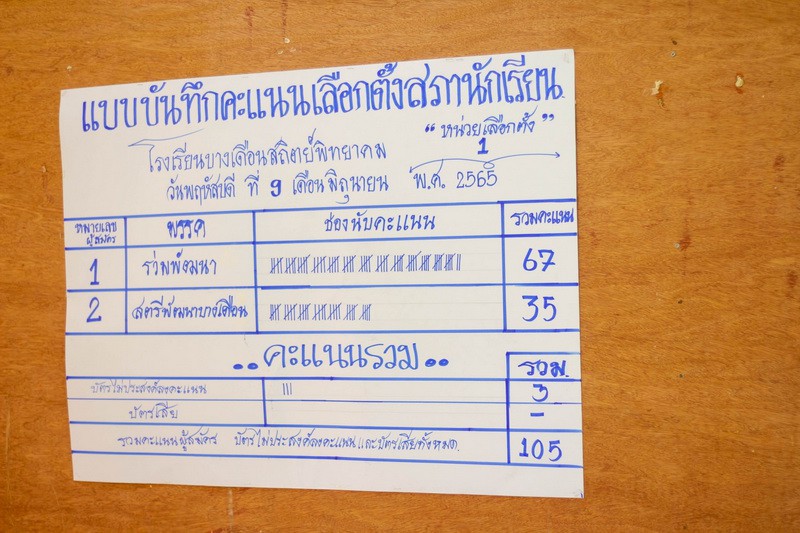 แบบบันทึกคะแนนเลือกตั้งสภานักเรียน
โรงเรียนบางเดือนสถิตย์พิทยาคม
"หน่วยเลือกตั้ง"
1
วันพฤหัสบดี ที่ 9 เดือน มิถุนายน พ.ศ. 2565
หมายเลขผู้สมัคร พรรค ช่องนับคะแนน รวมคะแนน
1 ร่วมพัฒนา 67
2 สตรีพัฒนาบางเดือน 35
..คะแนนรวม.. รวม.
บัตรไม่ประสงค์ลงคะแนน 3
บัตรเสีย -
รวมคะแนนผู้สมัคร บัตรไม่ประสงค์ลงคะแนน และบัตรเสียทั้งหมด. 105